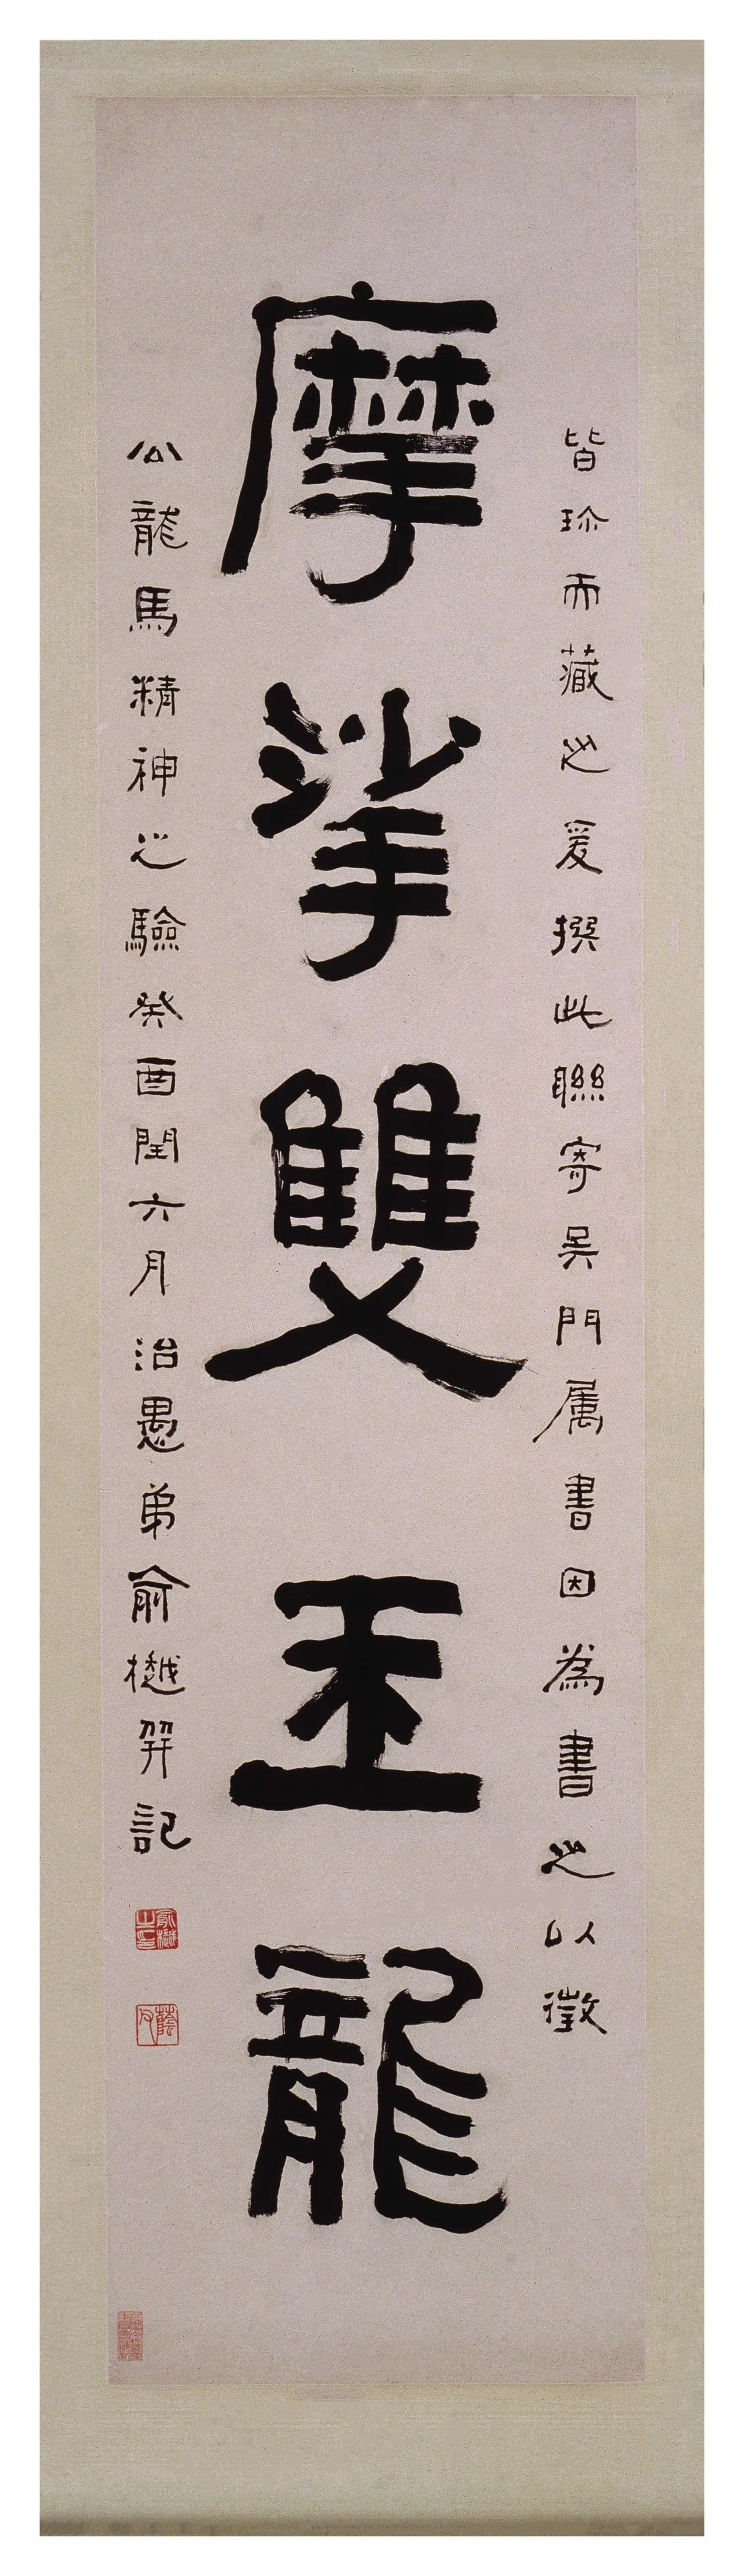 皆珎而藏之爰撰此聯寄吳門属書因為書之以徵
摩挲雙玉龍
公龍馬精神之驗癸酉閏六月治愚弟俞樾幷記
俞樾之印
蔭父